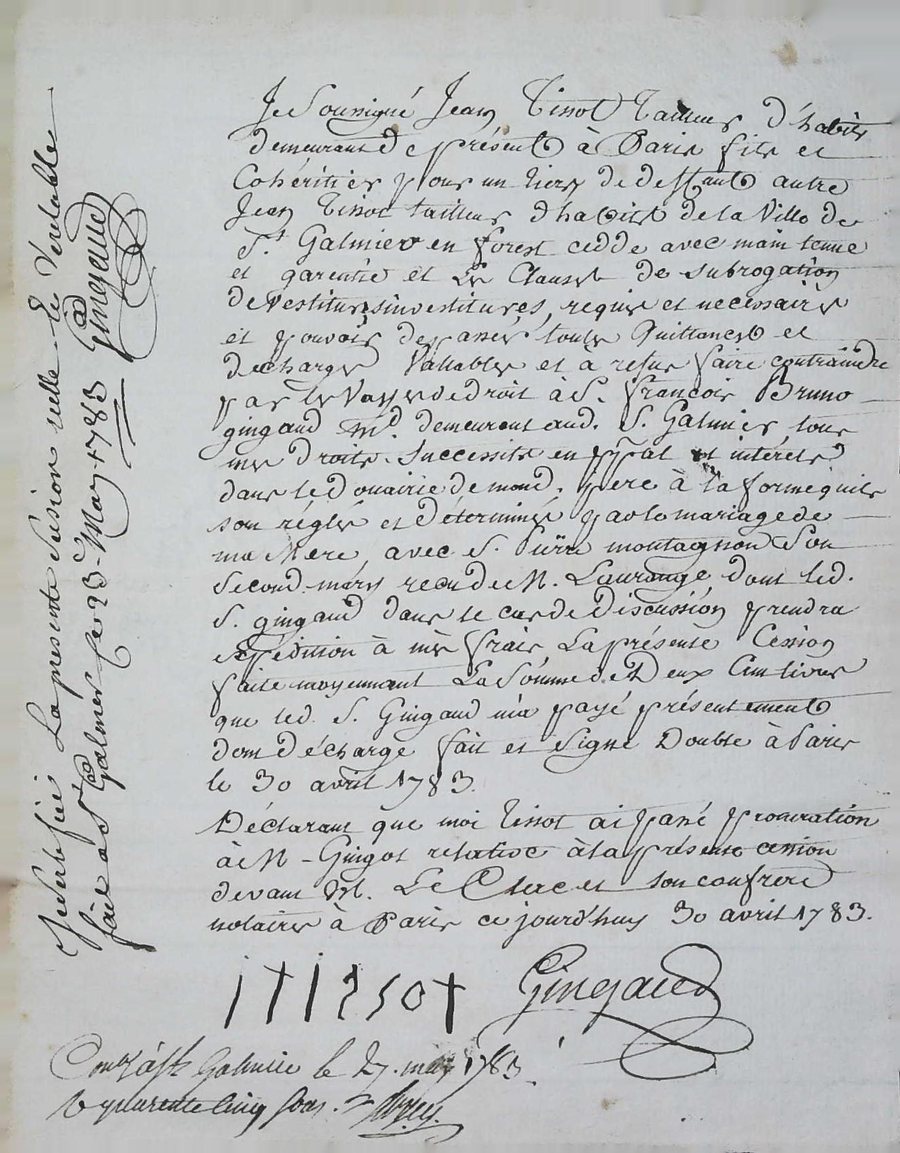 Je Soussigné Jean Tissot Tailleur d'habits
demeurant de présent à Paris fils et
Coheritier pour un tiers de deffunt autre
Jean Tissot tailleur d'habits de la Ville de
St. Galmier en forest cedde avec maintenue
et garentie et les Clauses de subrogation
devestitures investitures, requis et necessaire
et pouvoir de passer toutes Quittances et
decharges Vallables et a refus faire contraindre
par les Voyes de droit à S. françois Bruno
gingaud Md. demeurant aud. S. Galmier, tous
mes droits Successifs en ppal et intérets
dans le Douaire de mond. pere à la forme quils
son réglés et déterminés par le mariage de
ma Mere avec S. Pierre montagnon Son
Second mary recu de M. Laurange dont led.
S. gingaud dans le cas de Discussion prendra
expédition à mes frais La présente Cession
faite moyennant La Somme de Deux Cent livres
que led. S. Gingaud m'a payé présentement
dont décharge fait et Signé Double à Paris
le 30 avril 1783.
Déclarant que moi Tissot ai passé procuration
à M - Gingot relative à la présente cession
devant M. Le Clerc et son confrere
notaires à Paris ce jourd'huy 30 avril 1783.
Gingaud
St Galmier le 27. may 1783.
quarente cinq sous.
Je Certifié La presente Cession reelle et Veritable
fait a St Galmier ce 23 May 1783 Gingaud